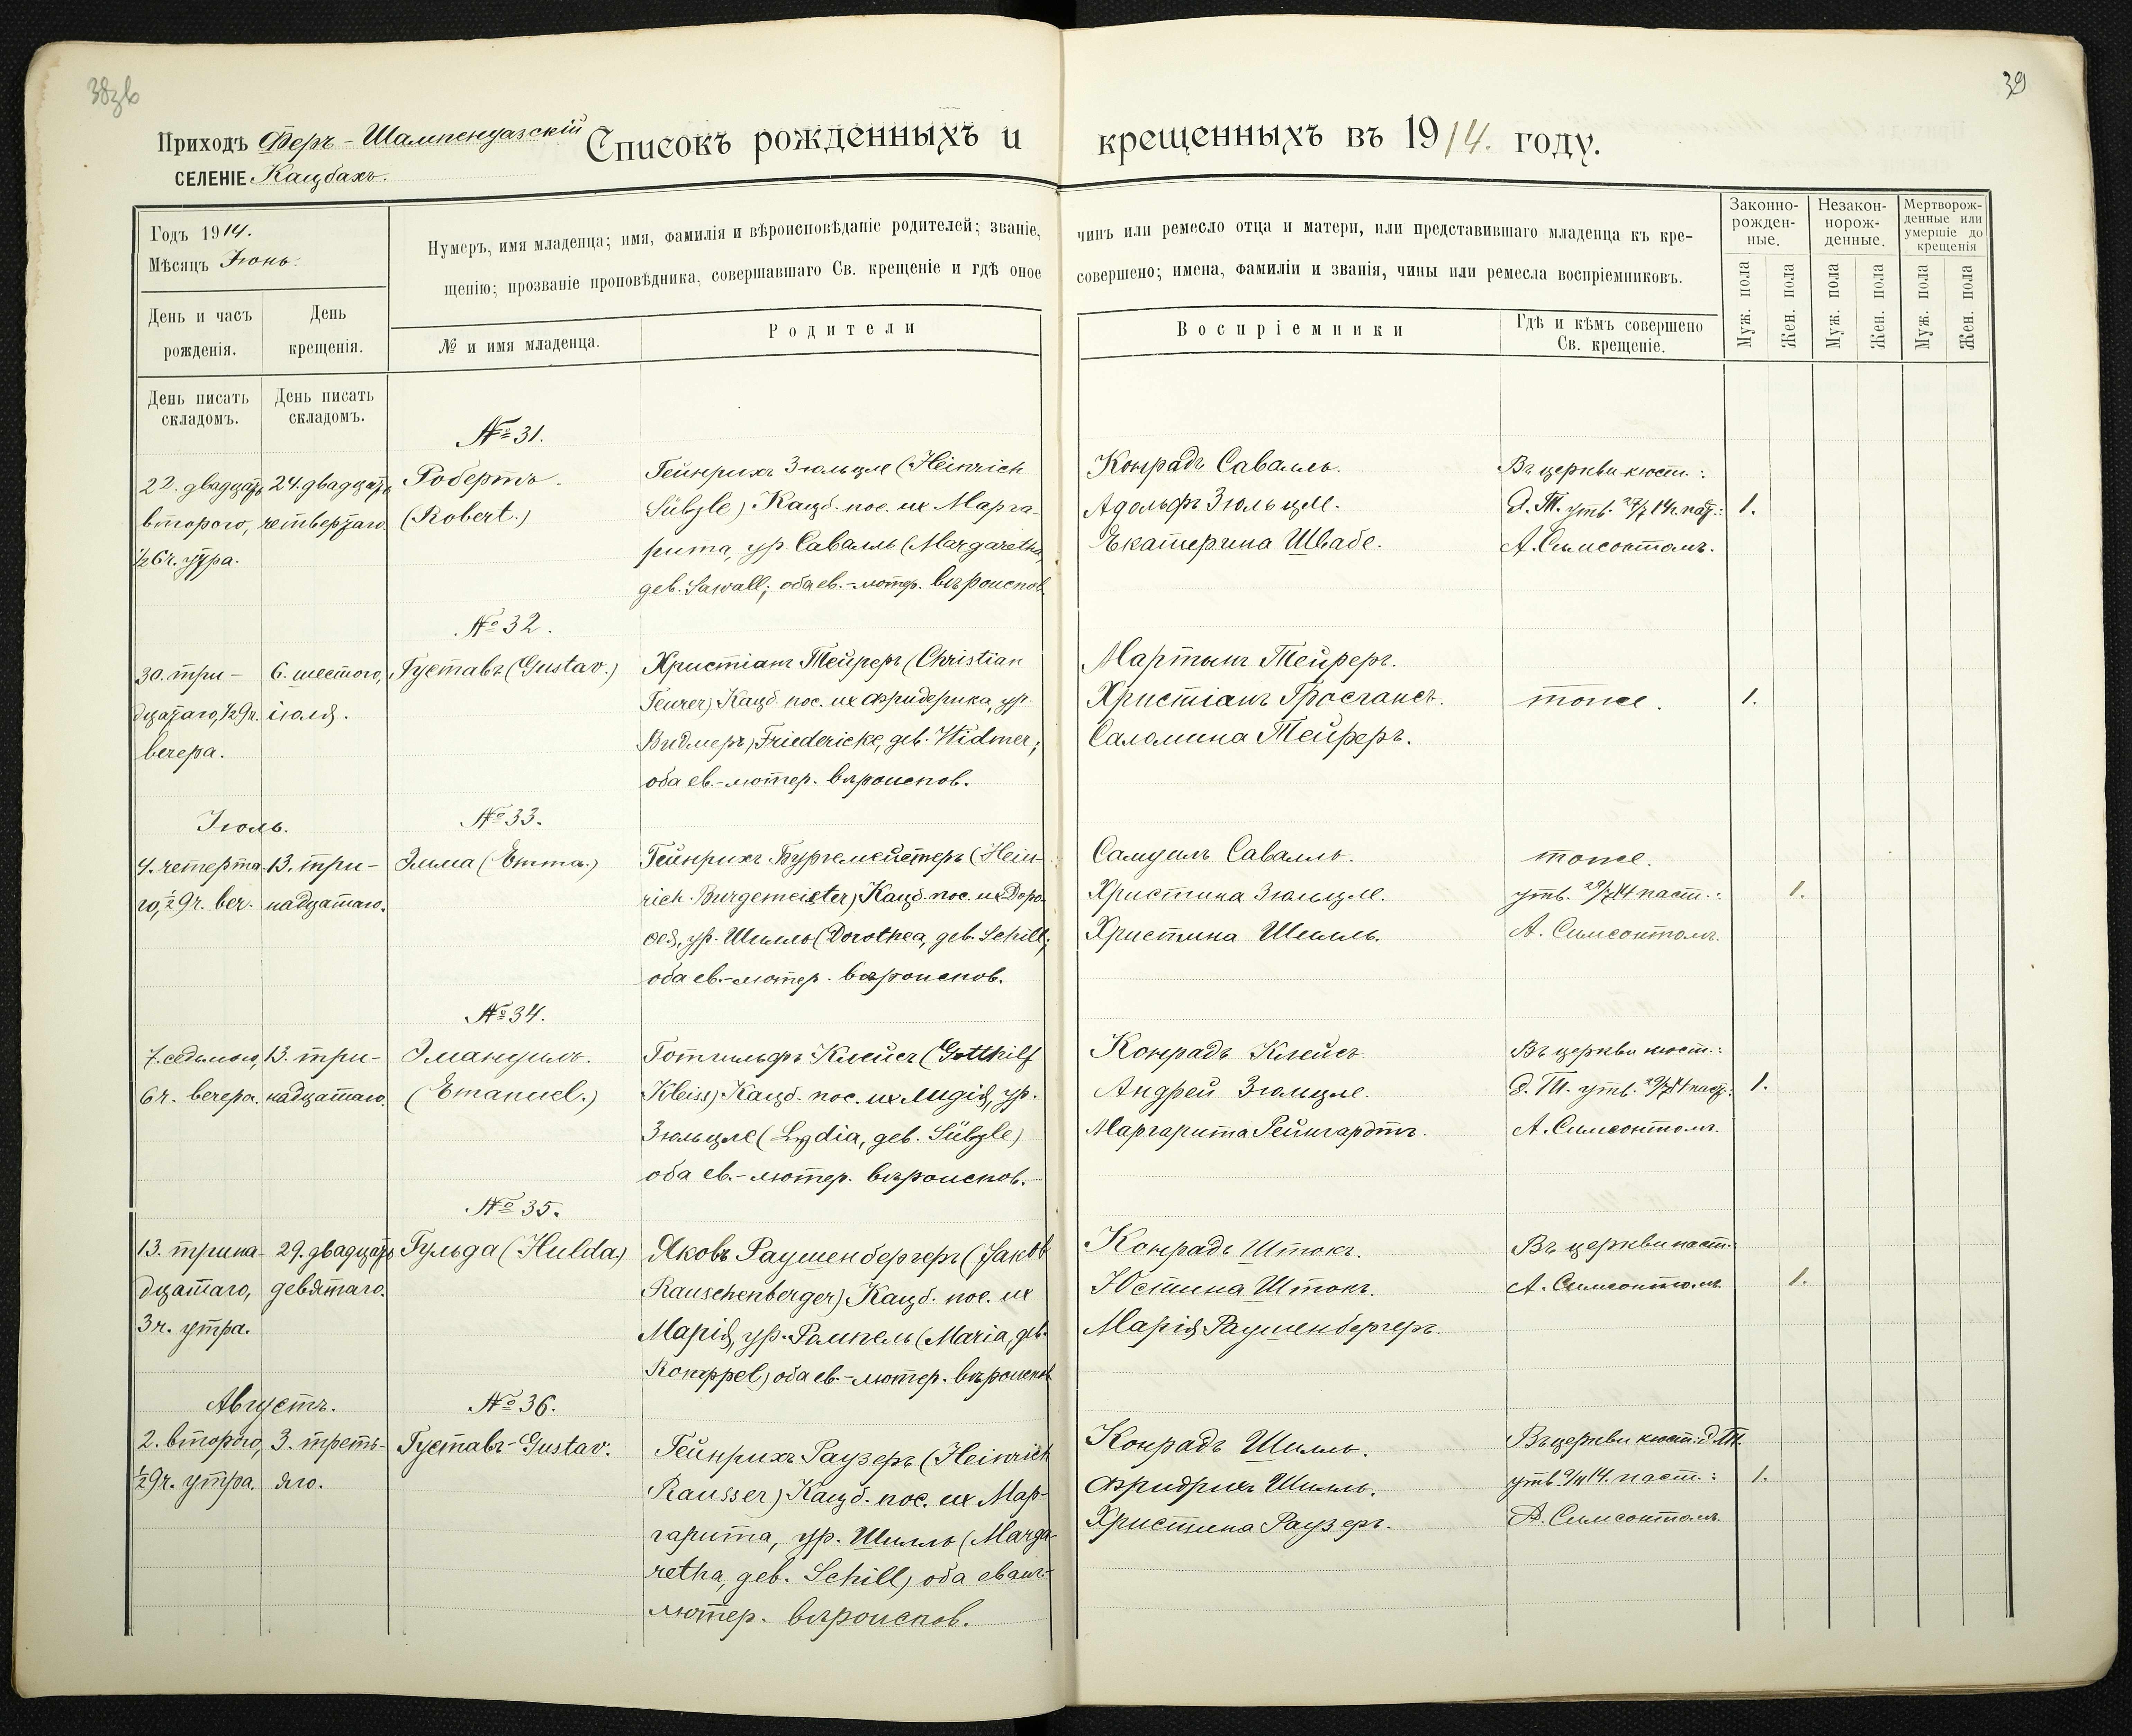 38зв
39
Приходъ Феръ-Шампенуазскій
СЕЛЕНІЕ Кацбахъ.
Списокъ рожденныхъ и крещенныхъ въ 1914. году.
Годъ 1914.
Мѣсяцъ Іюнь.
Нумеръ, имя младенца; имя, фамилія и вѣроисповѣданіе родителей; званіе, чинъ или ремесло отца и матери, или представившаго младенца къ кре-
щенію; прозваніе проповѣдника, совершавшаго Св. крещеніе и гдѣ оное совершено; имена, фамиліи и званія, чины или ремесла воспріемниковъ.
Законно-
рожден-
ные.
Незакон-
норож-
денные.
Мертворож-
денные или
умершіе до
крещенія
Муж. пола
Жен. пола
Муж. пола
Жен. пола
Муж. пола
Жен. пола
День и часъ
рожденія.
День
крещенія.
№ и имя младенца.
Родители
Воспріемники
Гдѣ и кѣмъ совершено
Св. крещеніе.
День писать
складомъ.
День писать
складомъ.
№ 31.
22. двадцать
второго,
½6ч. утра.
24. двадцать
четвертаго.
Робертъ.
(Robert.)
Гейнрихъ Зюльцле (Heinrich
Sülzle) Кацб. пос. и Марга-
рита, ур. Савалль (Margaretha,
geb. Sawall; оба ев.-лютер. вѣроиспов.
Конрадъ Савалль.
Адольфъ Зюльцле.
Екатерина Швабе.
Въ церкви кюст.:
Д. Т. утв. 29/7 14. паст.:
А. Симсонтомъ.
1.
№ 32.
30. три-
дцатаго, ½9ч.
вечера.
6. шестого,
іюля.
Густавъ (Gustav.)
Христіанъ Тейреръ (Christian
Teurer) Кацб. пос. и Фридерика, ур.
Видмеръ, Friedericke, geb. Widmer;
оба ев.-лютер. вѣроиспов.
Мартынъ Тейреръ.
Христіанъ Гросгансъ.
Саломина Тейреръ.
тоже.
1.
Іюль.
№ 33.
4. четерта-
го, ½9ч. веч.
13. три-
надцатаго.
Эмма (Emma.)
Гейнрихъ Бургемейстеръ (Hein-
rich Burgemeister) Кацб. пос. и Доро-
ѳея, ур. Шилль (Dorothea, geb. Schill;
оба ев.-лютер. вѣроиспов.
Самуилъ Савалль.
Христина Зюльцле.
Христина Шилль.
тоже.
утв. 29/7 14 паст.:
А. Симсонтомъ.
1.
№ 34.
7. седьмого,
6ч. вечера.
13. три-
надцатаго.
Эмануилъ.
(Emanuel.)
Готгильфъ Клейсъ (Gotthilf
Kleiss) Кацб. пос. и Лидія, ур.
Зюльцле (Lydia, geb. Sülzle)
оба ев.-лютер. вѣроиспов.
Конрадъ Клейсъ.
Андрей Зюльцле.
Маргарита Рейнгардтъ.
Въ церкви кюст.:
Д. Т. утв. 29/7 14 паст.:
А. Симсонтомъ.
1.
№ 35.
13. трина-
дцатаго,
3ч. утра.
29. двадцать
девятаго.
Гульда (Hulda)
Яковъ Раушенбергеръ (Jakob
Rauschenberger) Кацб. пос. и
Марія, ур. Ромпель (Maria, geb.
Romppel) оба ев.-лютер. вѣроиспов.
Конрадъ Штокъ.
Юстина Штокъ.
Марія Раушенбергеръ.
Въ церкви паст.
А. Симсонтомъ.
1.
Августъ.
№ 36.
2. второго,
½9ч. утра.
3. треть-
яго.
Густавъ-Gustav.
Гейнрихъ Раузеръ (Heinrich
Rausser) Кацб. пос. и Мар-
гарита, ур. Шилль (Marga-
retha, geb. Schill) оба еванг.-
лютер. вѣроиспов.
Конрадъ Шилль.
Фридрихъ Шилль.
Христина Раузеръ.
Въ церкви кюст: Д. Т.
утв. 14. паст.:
А. Симсонтомъ.
1.